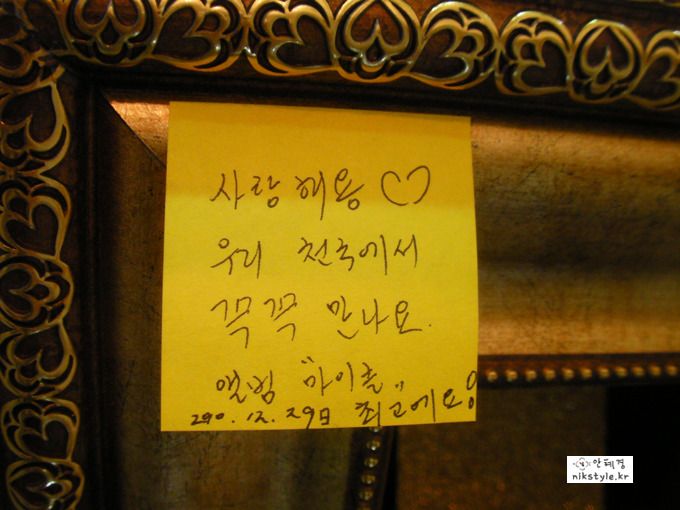 사랑해용 ♡
우리 천국에서
꼭꼭 만나요.
앨범 "마이클"
2010. 12. 29日 최고에요!
안혜경
nikstyle.kr